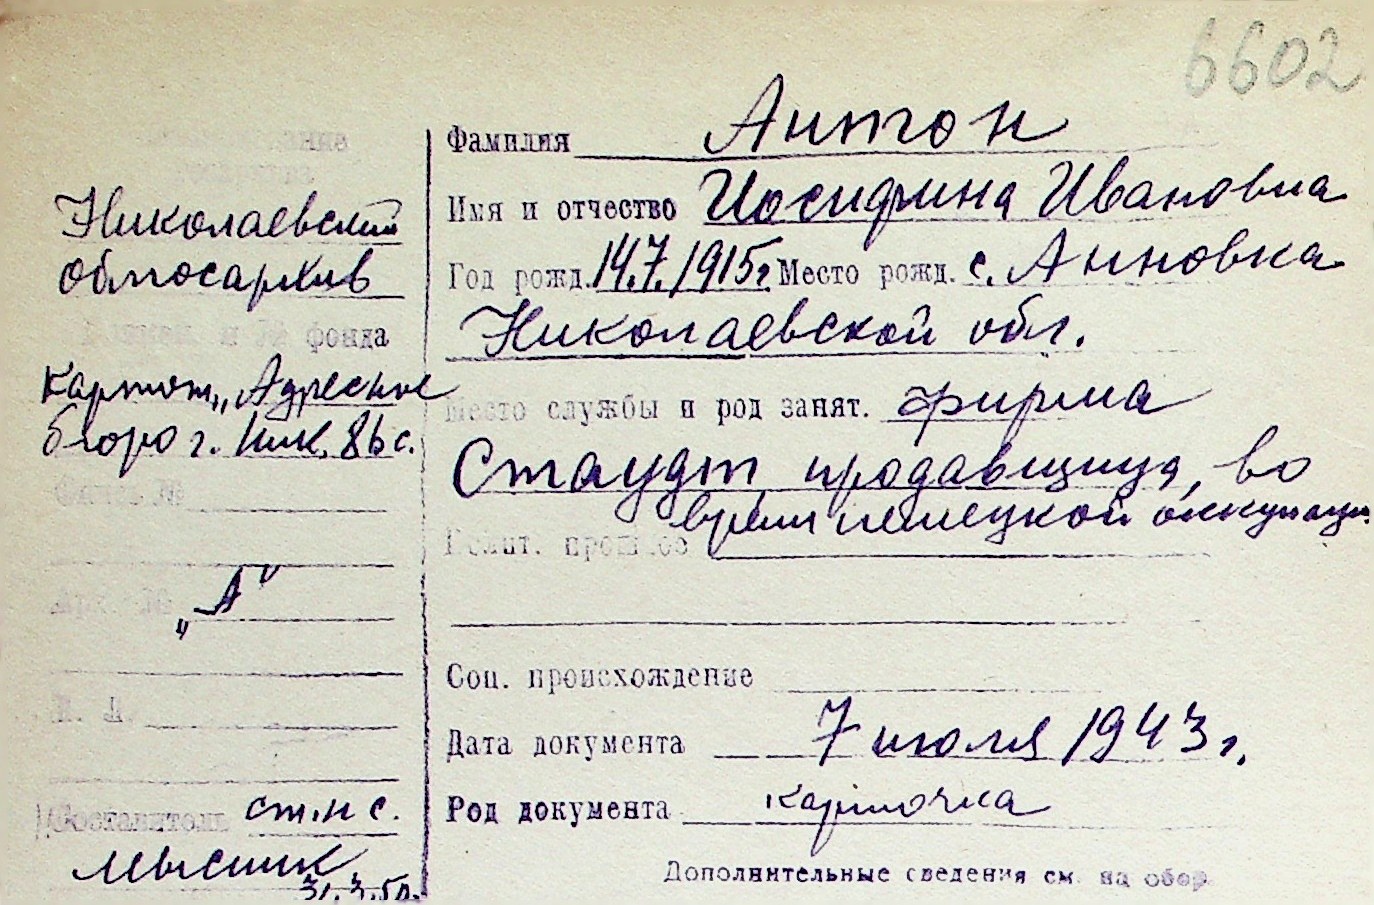 6602
Николаевский
облгосархив
фонда
картот. „Адресное
бюро г. Ник.
„А"
Составитель ст. н с.
Мысник
Фамилия Антон
Имя и отчество Иосифина Ивановна
Год рожд. 14.7.1915г Место рожд. с. Анновка
Николаевской обл.
Место службы и род занят. фирма
Стаудт продавщица, во
время немецкой оккупации
Полит. прошлое
Соц. происхождение
Дата документа 7 июля 1943 г.
Род документа карточка
Дополнительные сведения см. на обор.